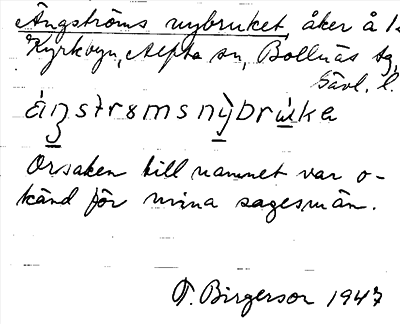 Ångströms nybruket, åker å 1.
Kyrkbyn, Alfta sn, Bollnäs tg,
Gävl. l.
Orsaken till namnet var o-
känd för mina sagesmän.
T. Birgerson 1947